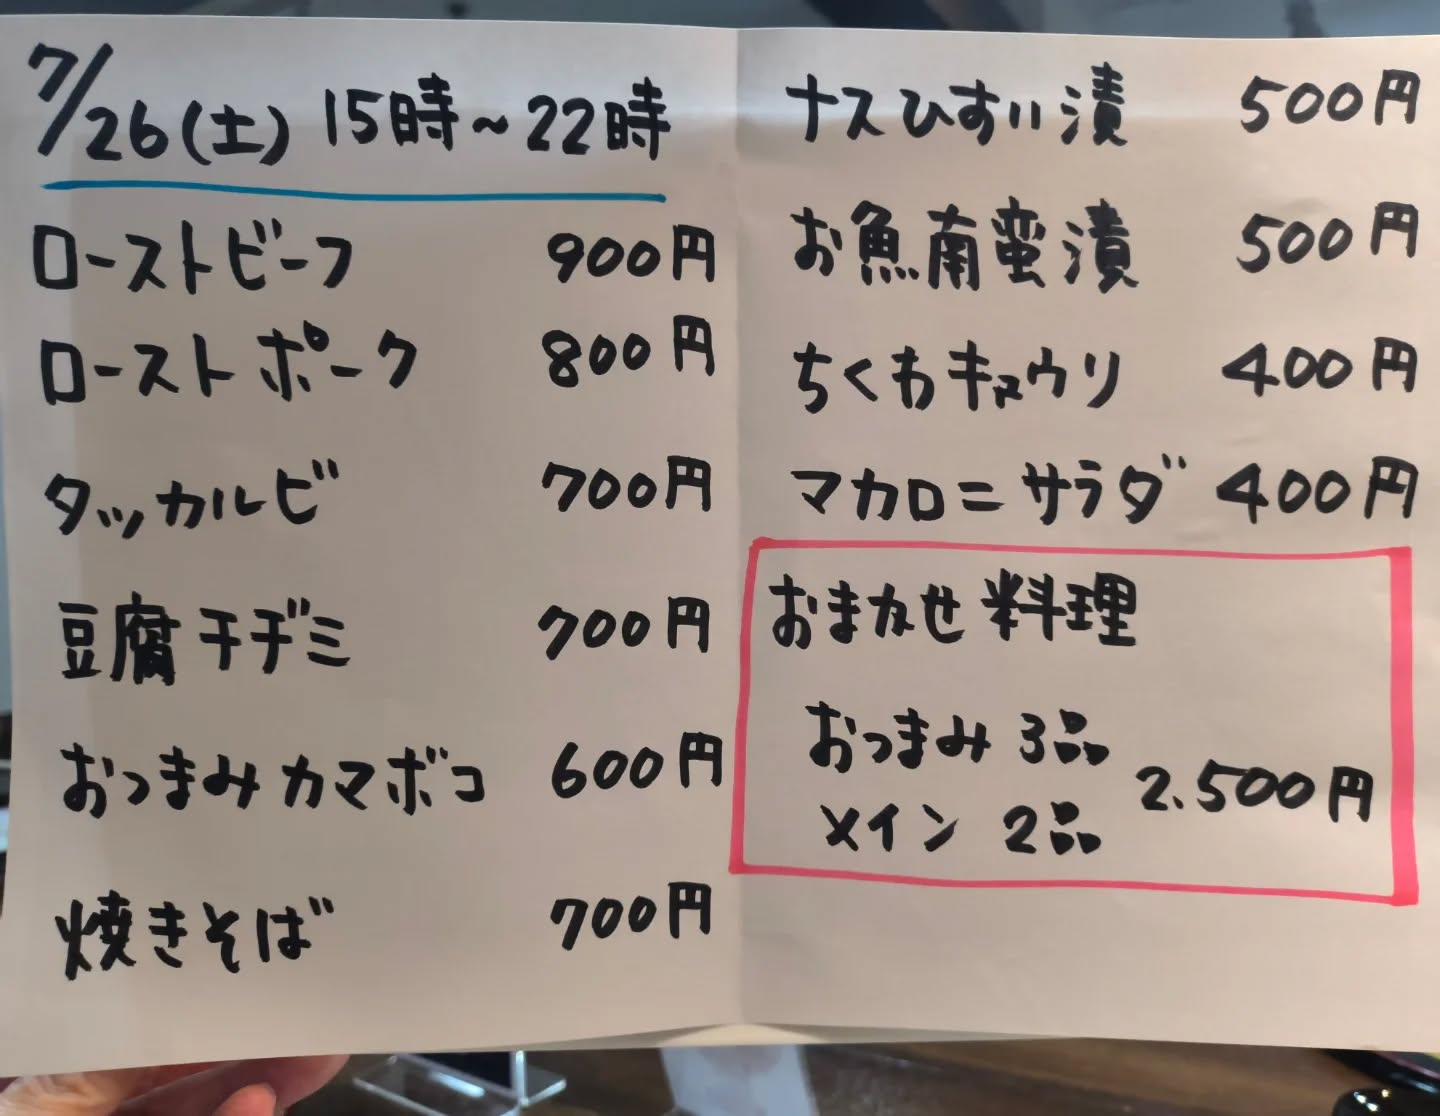 7/26(土) 15時~22時
ローストビーフ 900円
ローストポーク 800円
タッカルビ 700円
豆腐チヂミ 700円
おつまみカマボコ 600円
焼きそば 700円
ナスひすい漬 500円
お魚南蛮漬 500円
ちくわキュウリ 400円
マカロニサラダ 400円
おまかせ料理
おつまみ 3品
2.500円
メイン 2品